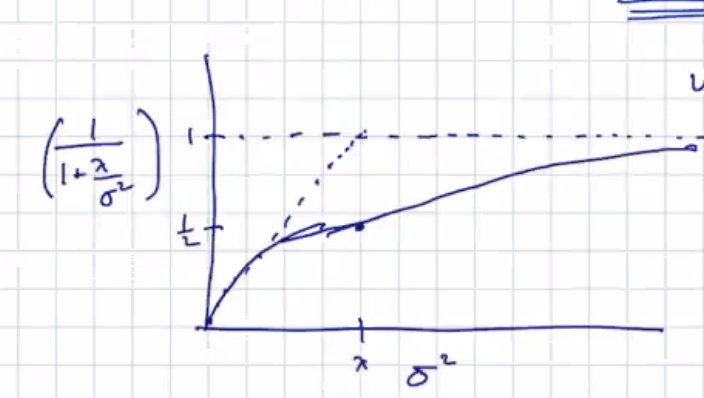 1
(1/(1+λ/σ²))
1/2
λ
σ²